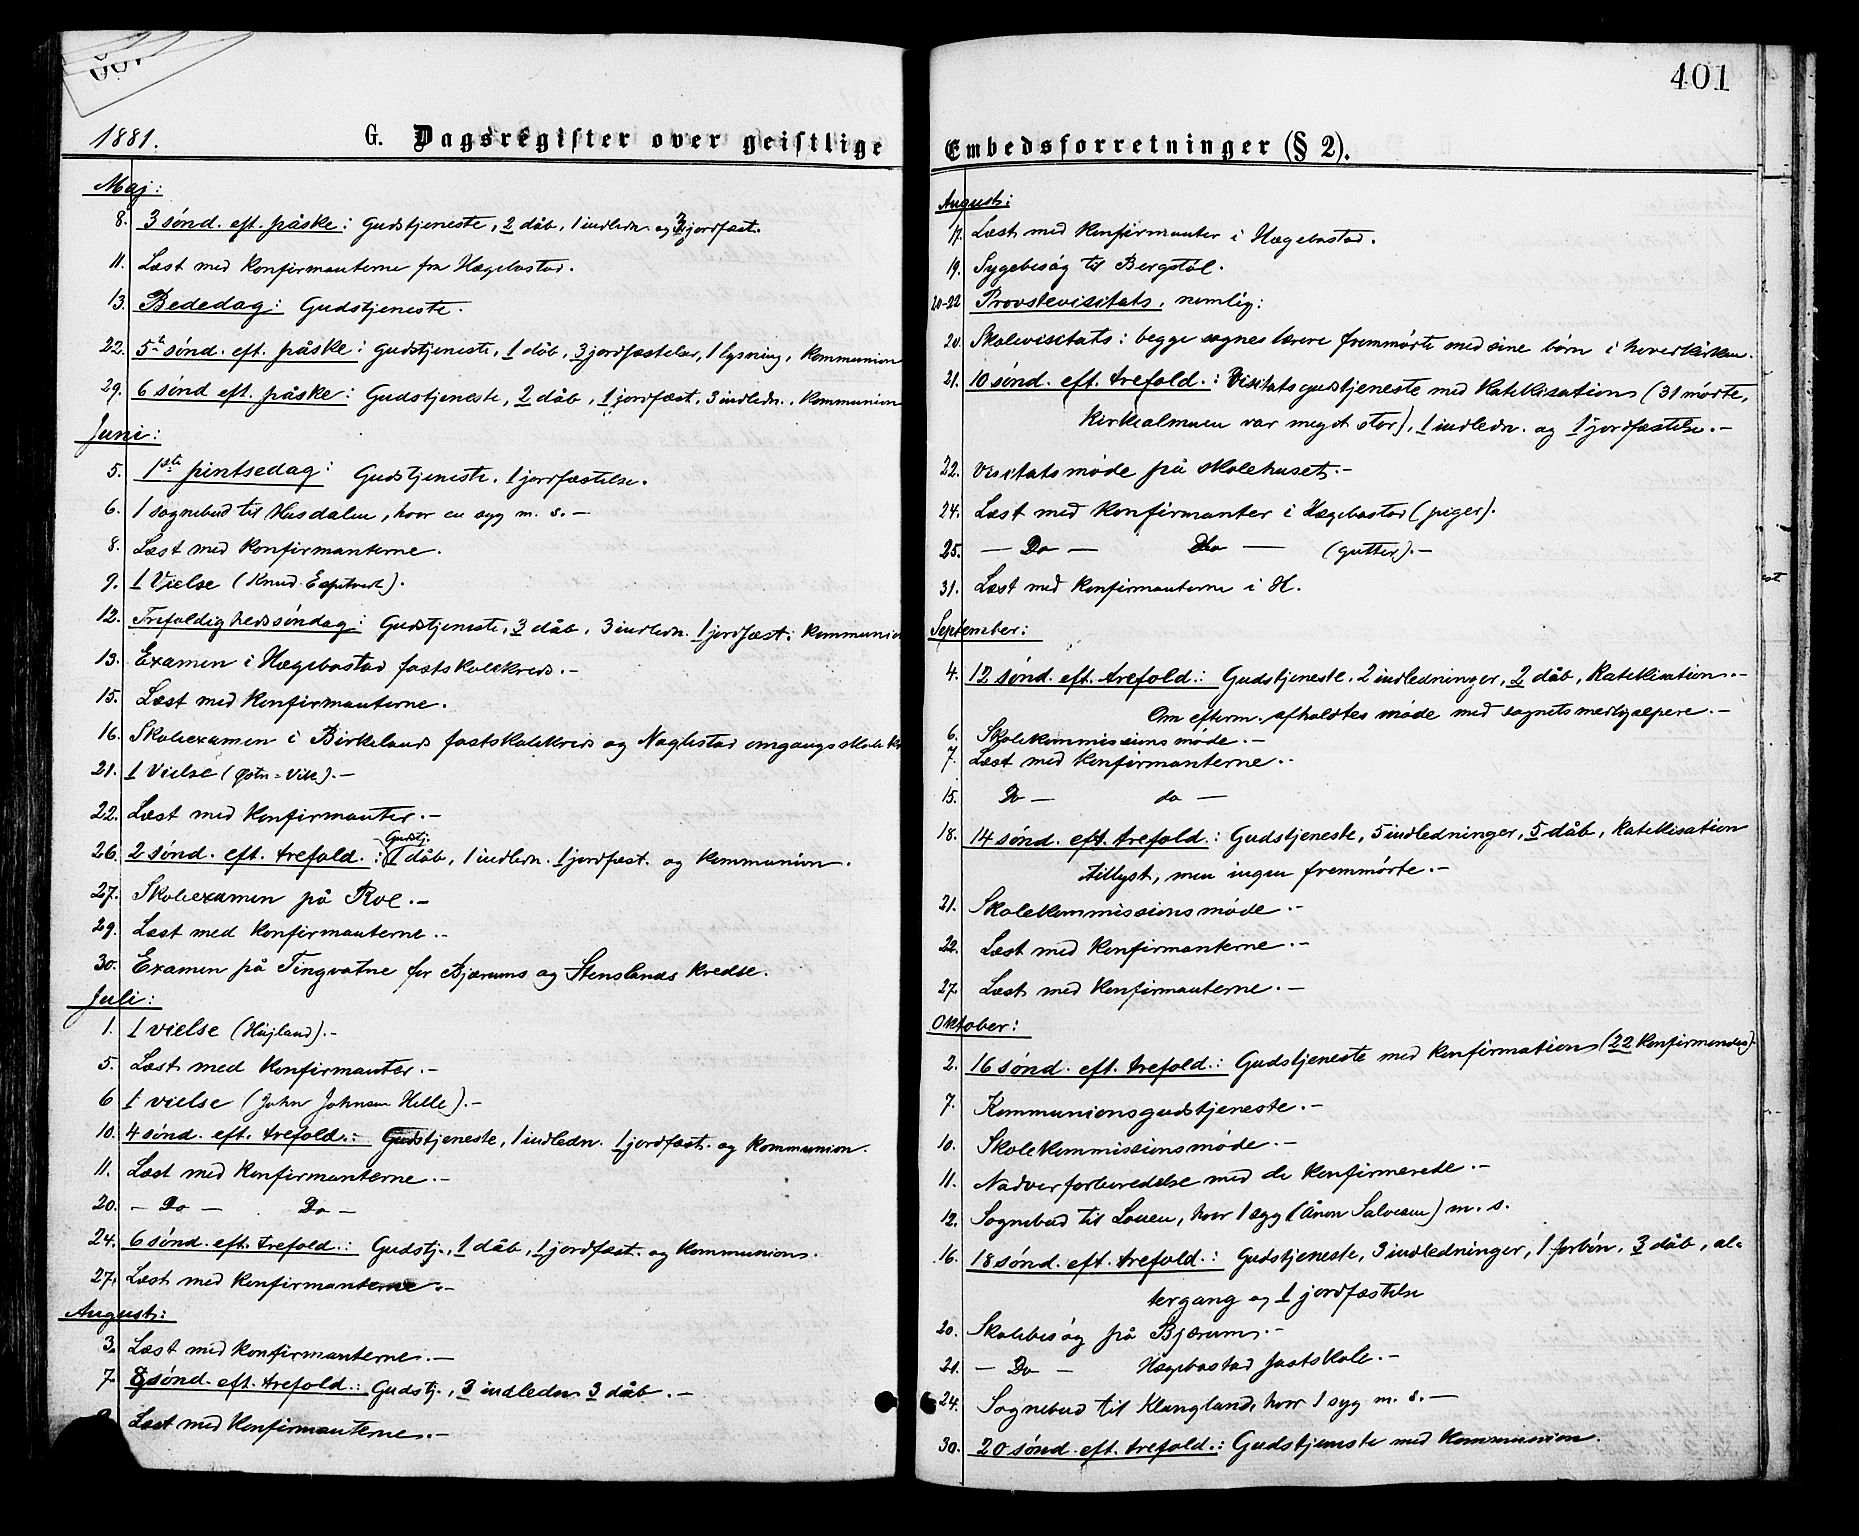 401
1881. G. Dagsregister over geistlige
Maj:
8. 3 sønd. eft. påske: Gudstjeneste, 2 dåb, 1 indledn. og 3 jordfæst.
11. Læst med Konfirmanterne fra Hægebostad.
13. Bededag: Gudstjeneste.
22. 5te sønd. eft. påske: Gudstjeneste, 1 dåb, 3 jordfæstelser, 1 lysning, Kommunion
29. 6 sønd eft. påske: Gudstjeneste, 2 dåb, 1 jordfæst, 3 indledn., Kommunion
Juni:
5. 1ste pintsedag: Gudstjeneste. 1 jordfæstelse.
6. 1 sognebud til Husdalen, hvor en syg m. s. –
8. Læst med Konfirmanterne.
9. 1 Vielse (Knud).
12. Trefoldighedssøndag: Gudstjeneste, 3 dåb, 3 indledn. 1 jordfæst: Kommunion
13. Examen i Hægebostad fastskolekreds. –
15. Læst med Konfirmanterne.
16. Skoleexamen i Birkelands fastskolekreds og Naglestad omgangsskole
21. 1 Vielse. –
22. Læst med Konfirmanter. –
26. 2 sønd. eft. trefold.: Gudstj. 1 dåb, 1 indledn. 1 jordfæst. og Kommunion.
27. Skoleexamen på Roe. –
29. Læst med Konfirmanterne. –
30. Examen på Tingvatne for Bjærums og Stenslands kredse.
Juli:
1. 1 vielse (Højland). –
5. Læst med Konfirmanter. –
6 1 vielse (John Johnsen Helle). –
10. 4 sønd. eft. trefold.: Gudstjeneste, 1 indledn. 1 jordfæst. og Kommunion.
11. Læst med Konfirmanterne. –
20. – Do – Do –
24. 6 sønd. eft. trefold.: Gudstj., 1 dåb, 1 jordfæst. og Kommunion.
27. Læst med Konfirmanterne. –
August:
3. Læst med Konfirmanterne. –
7. 8 sønd. eft. trefold.: Gudstj., 3 indledn 3 dåb. –
Læst med Konfirmanterne. –
Embedsforretninger (§ 2).
August:
17. Læst med Konfirmanter i Hægebostad.
19. Sygebesøg til Bergstøl.
20-22 Provstevisitats, nemlig:
20. Skolevisitats: begge sognes lærere fremmødte med sine børn i hovedkirken.
21. 10 sønd. eft. trefold.: Visitatsgudstjeneste med Katekisation (31 mødte,
Kirkealmuen var meget stor), 1 indledn. og 1 jordfæstelse. –
22. Visitatsmøde på skolehuset. –
24. Læst med Konfirmanter i Hægebostad (piger).
25. – Do – Do – (gutter). –
31. Læst med Konfirmanterne i H.
September:
4. 12 sønd. eft. trefold.: Gudstjeneste, 2 indledninger, 2 dåb, Katekisation. –
Om efterm. afholdtes møde med sognets medhjælpere. –
6. Skolekommissionsmøde. –
7. Læst med Konfirmanterne. –
15. Do – do –
18. 14 sønd. eft. trefold.: Gudstjeneste, 5 indledninger, 5 dåb, Katekisation
tillyst, men ingen fremmødte. –
21. Skolekommissionsmøde. –
22. Læst med Konfirmanterne. –
27. Læst med Konfirmanterne. –
Oktober:
2. 16 sønd. eft. trefold.: Gudstjeneste med Konfirmation (22 Konfirmander).
7. Kommunionsgudstjeneste. –
10. Skolekommissionsmøde. –
11. Nadverforberedelse med de Konfirmerede. –
12. Sognebud til Louen, hvor 1 syg (Ånon Salvesen) m. s.
16. 18 sønd. eft. trefold.: Gudstjeneste, 3 indledninger, 1 forbøn, 3 dåb, al-
tergang og 1 jordfæstelse
20. Skolebesøg på Bjærum. –
21. – Do – Hægebostad fastskole. –
24. Sognebud til Klungland, hvor 1 syg m. s. –
30. 20 sønd. eft. trefold.: Gudstjeneste med Kommunion.